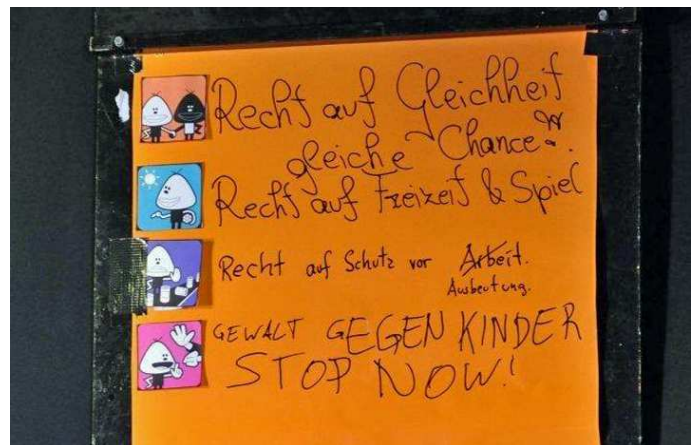 Recht auf Gleichheit
gleiche Chance.
Recht auf Freizeit & Spiel
Recht auf Schutz vor Arbeit.
Ausbeutung.
GEWALT GEGEN KINDER
STOP NOW!